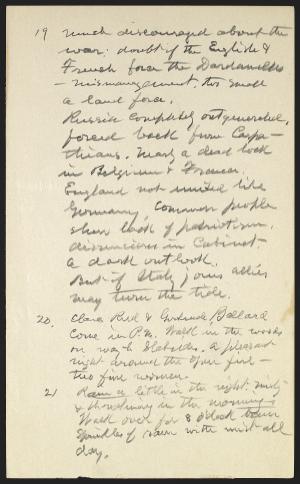 19 much discouraged about the
war. doubt if the English &
French force the Dardanelles
– mismanagement, too small
a land force.
Russia completely outgeneraled,
forced back from Carpa-
thians. Nearly a dead lock
in Belgium & France.
England not united like
Germany, common people
show lack of patriotism.
dissensions in Cabinet –
a dark outlook.
But if Italy joins allies
may turn the tide.
20. Clara Reed & Gertrude Ballard
come in P.M. Walk in the woods
on way to Slabsides. A pleasant
night around the open fire –
two fine women.
21 Rain a little in the night, misty
& showery in the morning.
Walk over for 8 o'clock train
Sprinkles of rain with mist all
day.